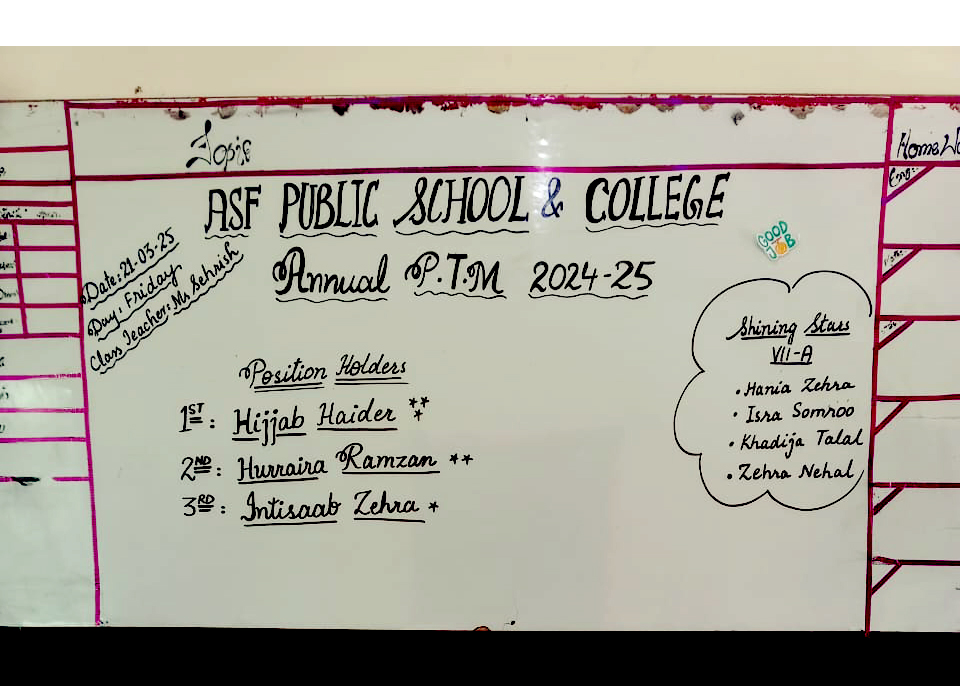 Topic
ASF PUBLIC SCHOOL & COLLEGE
Annual P.T.M 2024-25
Date: 21-03-25
Day: Friday
Class Teacher: Ms Sehrish
GOOD
JOB
Position Holders
1ST: Hijjab Haider ***
2ND: Hurraira Ramzan **
3RD: Intisaab Zehra *
Shining Stars
VII-A
• Hania Zehra
• Isra Somroo
• Khadija Talal
• Zehra Nehal
Home
Eng: